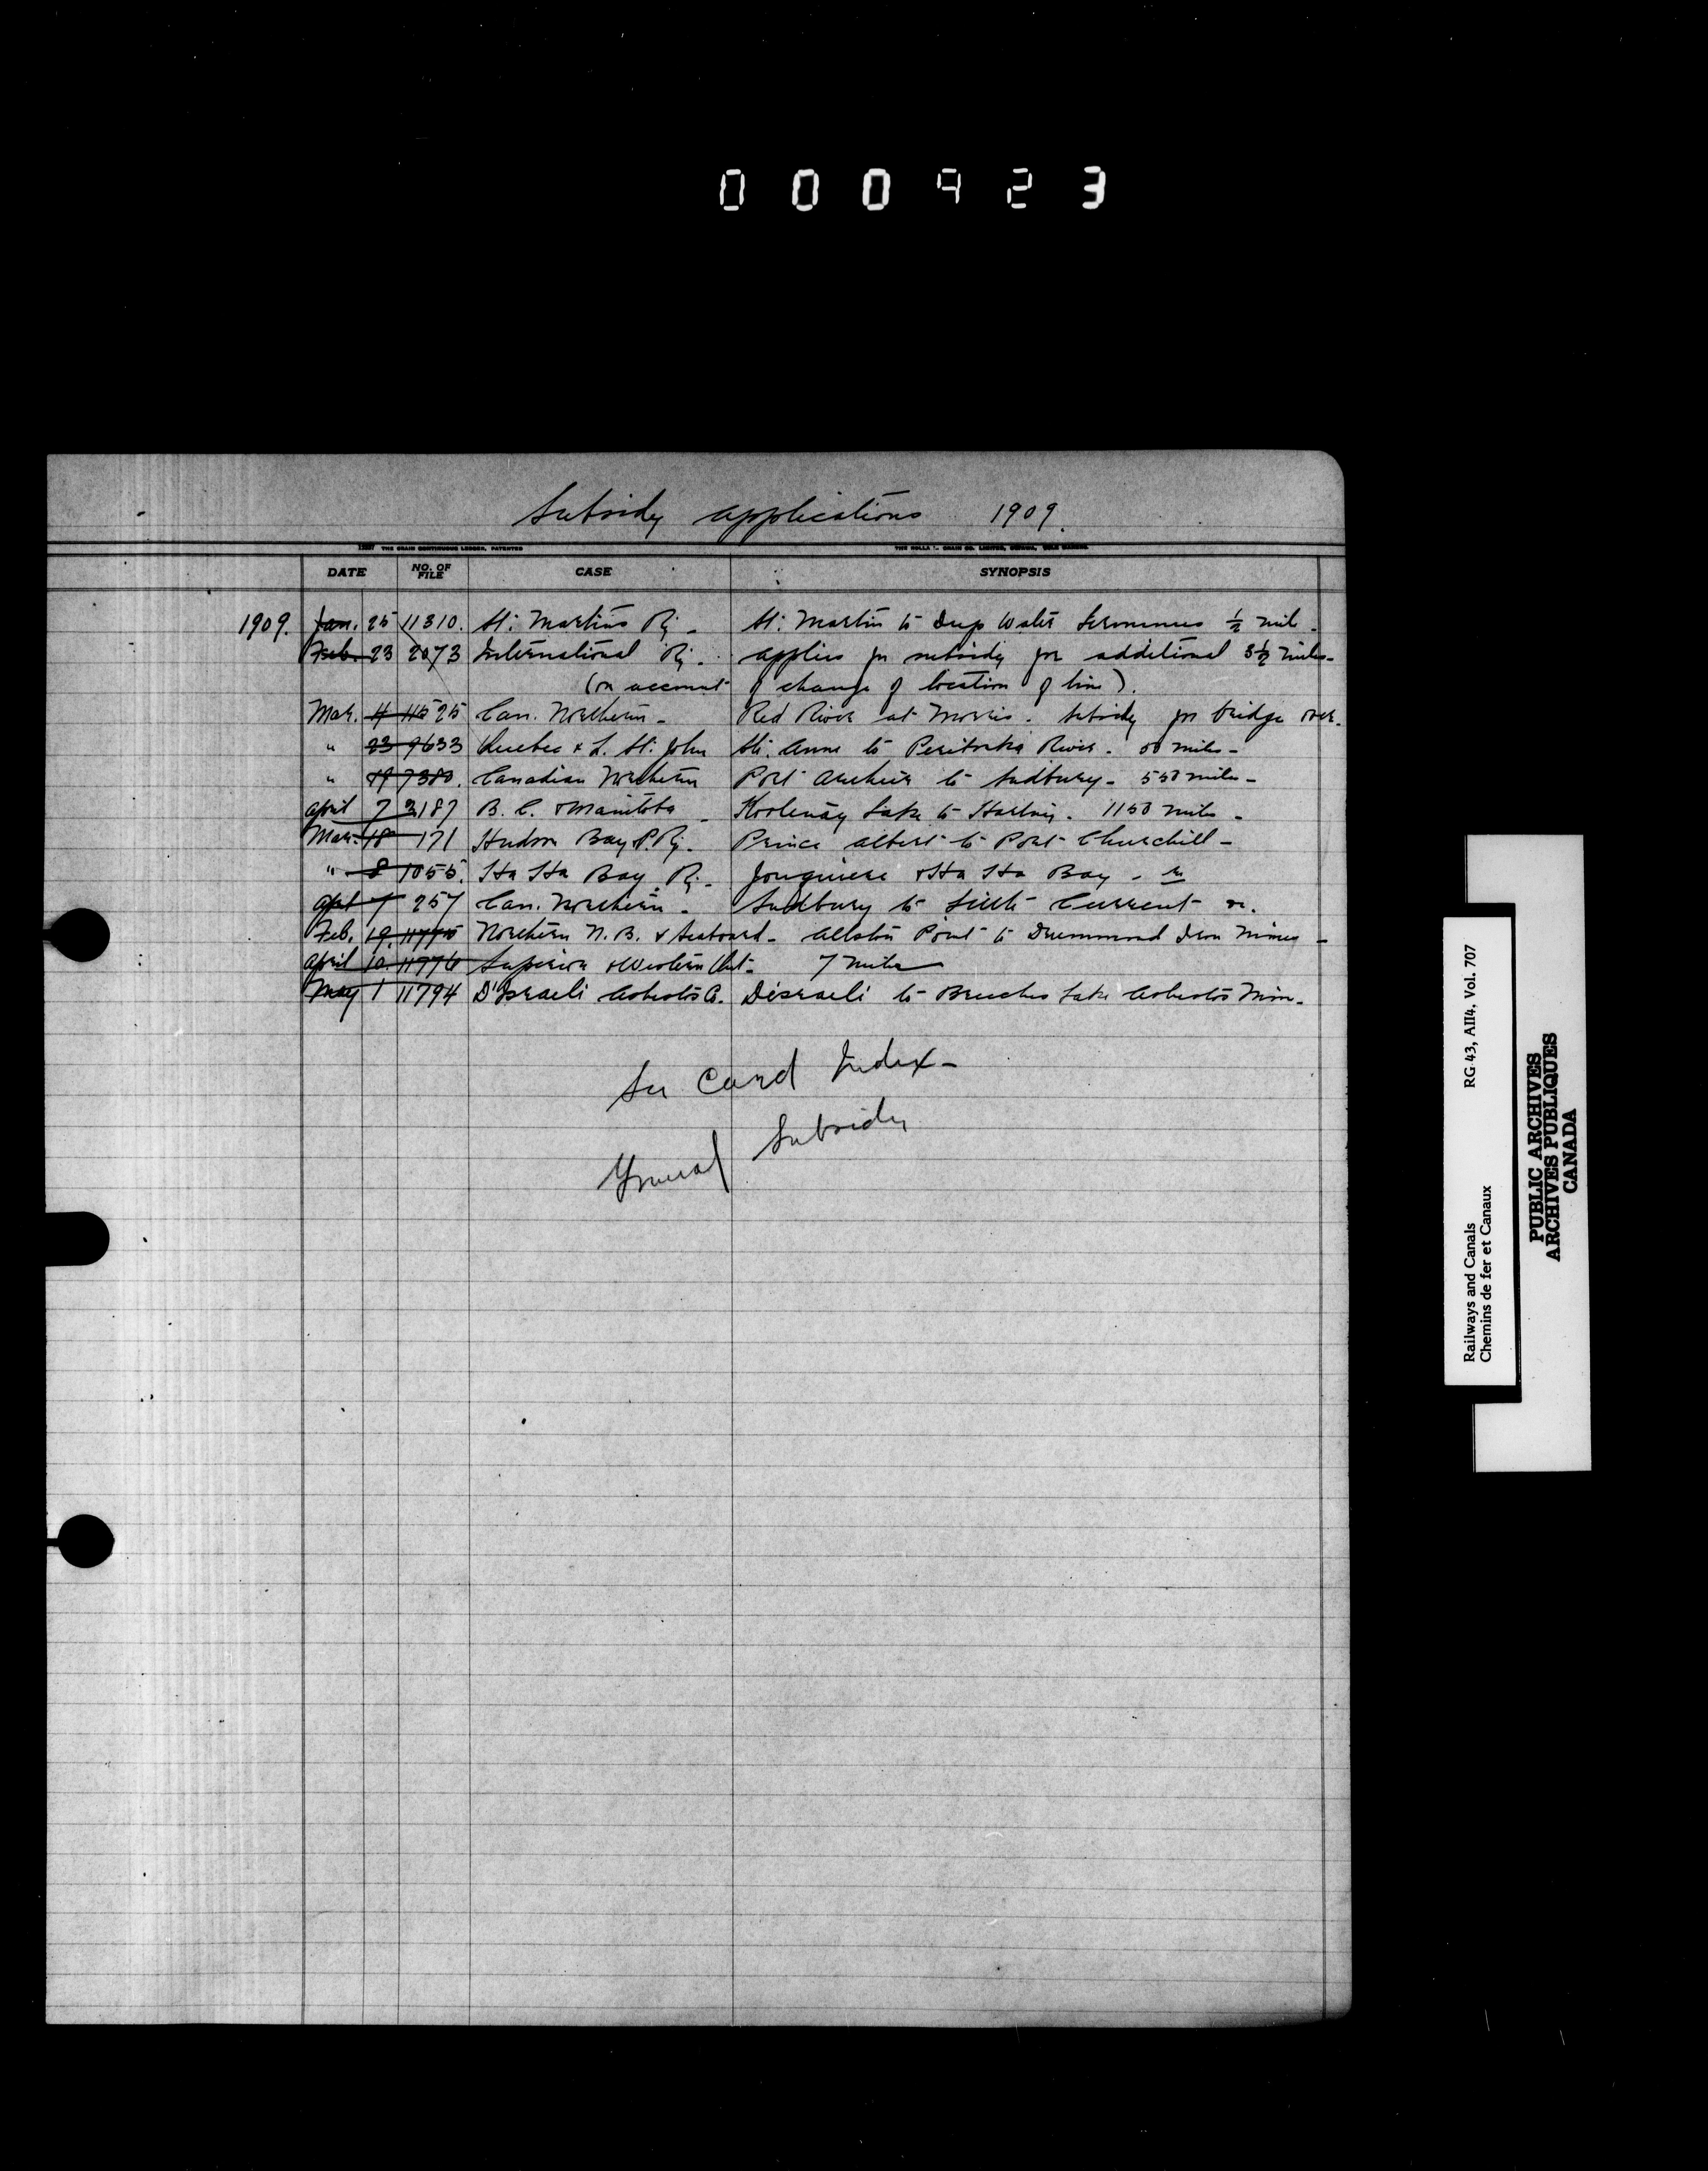 000923
Subsidy applications 1909.
THE CRAIN CONTINUOUS LEDGER, PATENTED
DATE NO. OF FILE CASE SYNOPSIS
1909. Jan. 25 11310. St. Martins Ry. St. Martin to Deep Water terminus ½ mile.
Feb. 23 2073 International Ry. applies for subsidy for additional 3½ miles
(on account of change of location of line).
Mar. 4 11525 Can. Northern. Red River at Morris. Subsidy for bridge over.
" 23 9633 Quebec & L. St. John Ste. Anne to River. 50 miles
" 19 7380. Canadian Northern Port Arthur to Sudbury. 550 miles
April 7 3187 B. C. & Manitoba Kootenay Lake to Hartney. 1150 miles
Mar. 18 171 Hudson Bay & P. Ry. Prince Albert to Port Churchill
" 8 1055. Ha Ha Bay Ry. Jonquiere & Ha Ha Bay
Apl 7 257 Can. Northern. Sudbury to Little Current
Feb. 19. 11775 Northern N. B. & Seaboard. Allston Point to Drummond Iron Mines
April 10. 11776 Superior & Western Ont. 7 miles
May 1 11794 D'Israeli Asbestos Co. Disraeli to Breeches Lake Asbestos Mine.
See Card Index
General Subsidy
Railways and Canals RG 43, AII4, Vol. 707
Chemins de fer et Canaux
PUBLIC ARCHIVES
ARCHIVES PUBLIQUES
CANADA